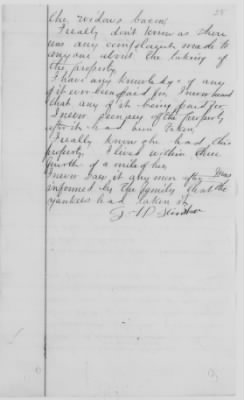 28
the widows bacon
I really don't know as there
was any complaynts made to
anyone about the taking of
the property.
I have any knowledge of any
of it ever been paid for. I never heard
that any of it being paid for
I never seen any of the property
after it had been taken,
I really know she had this
property I lived within three
fourth of a mile of her
I never saw it any more after I was
informed by the family that the
yankees had taken it.